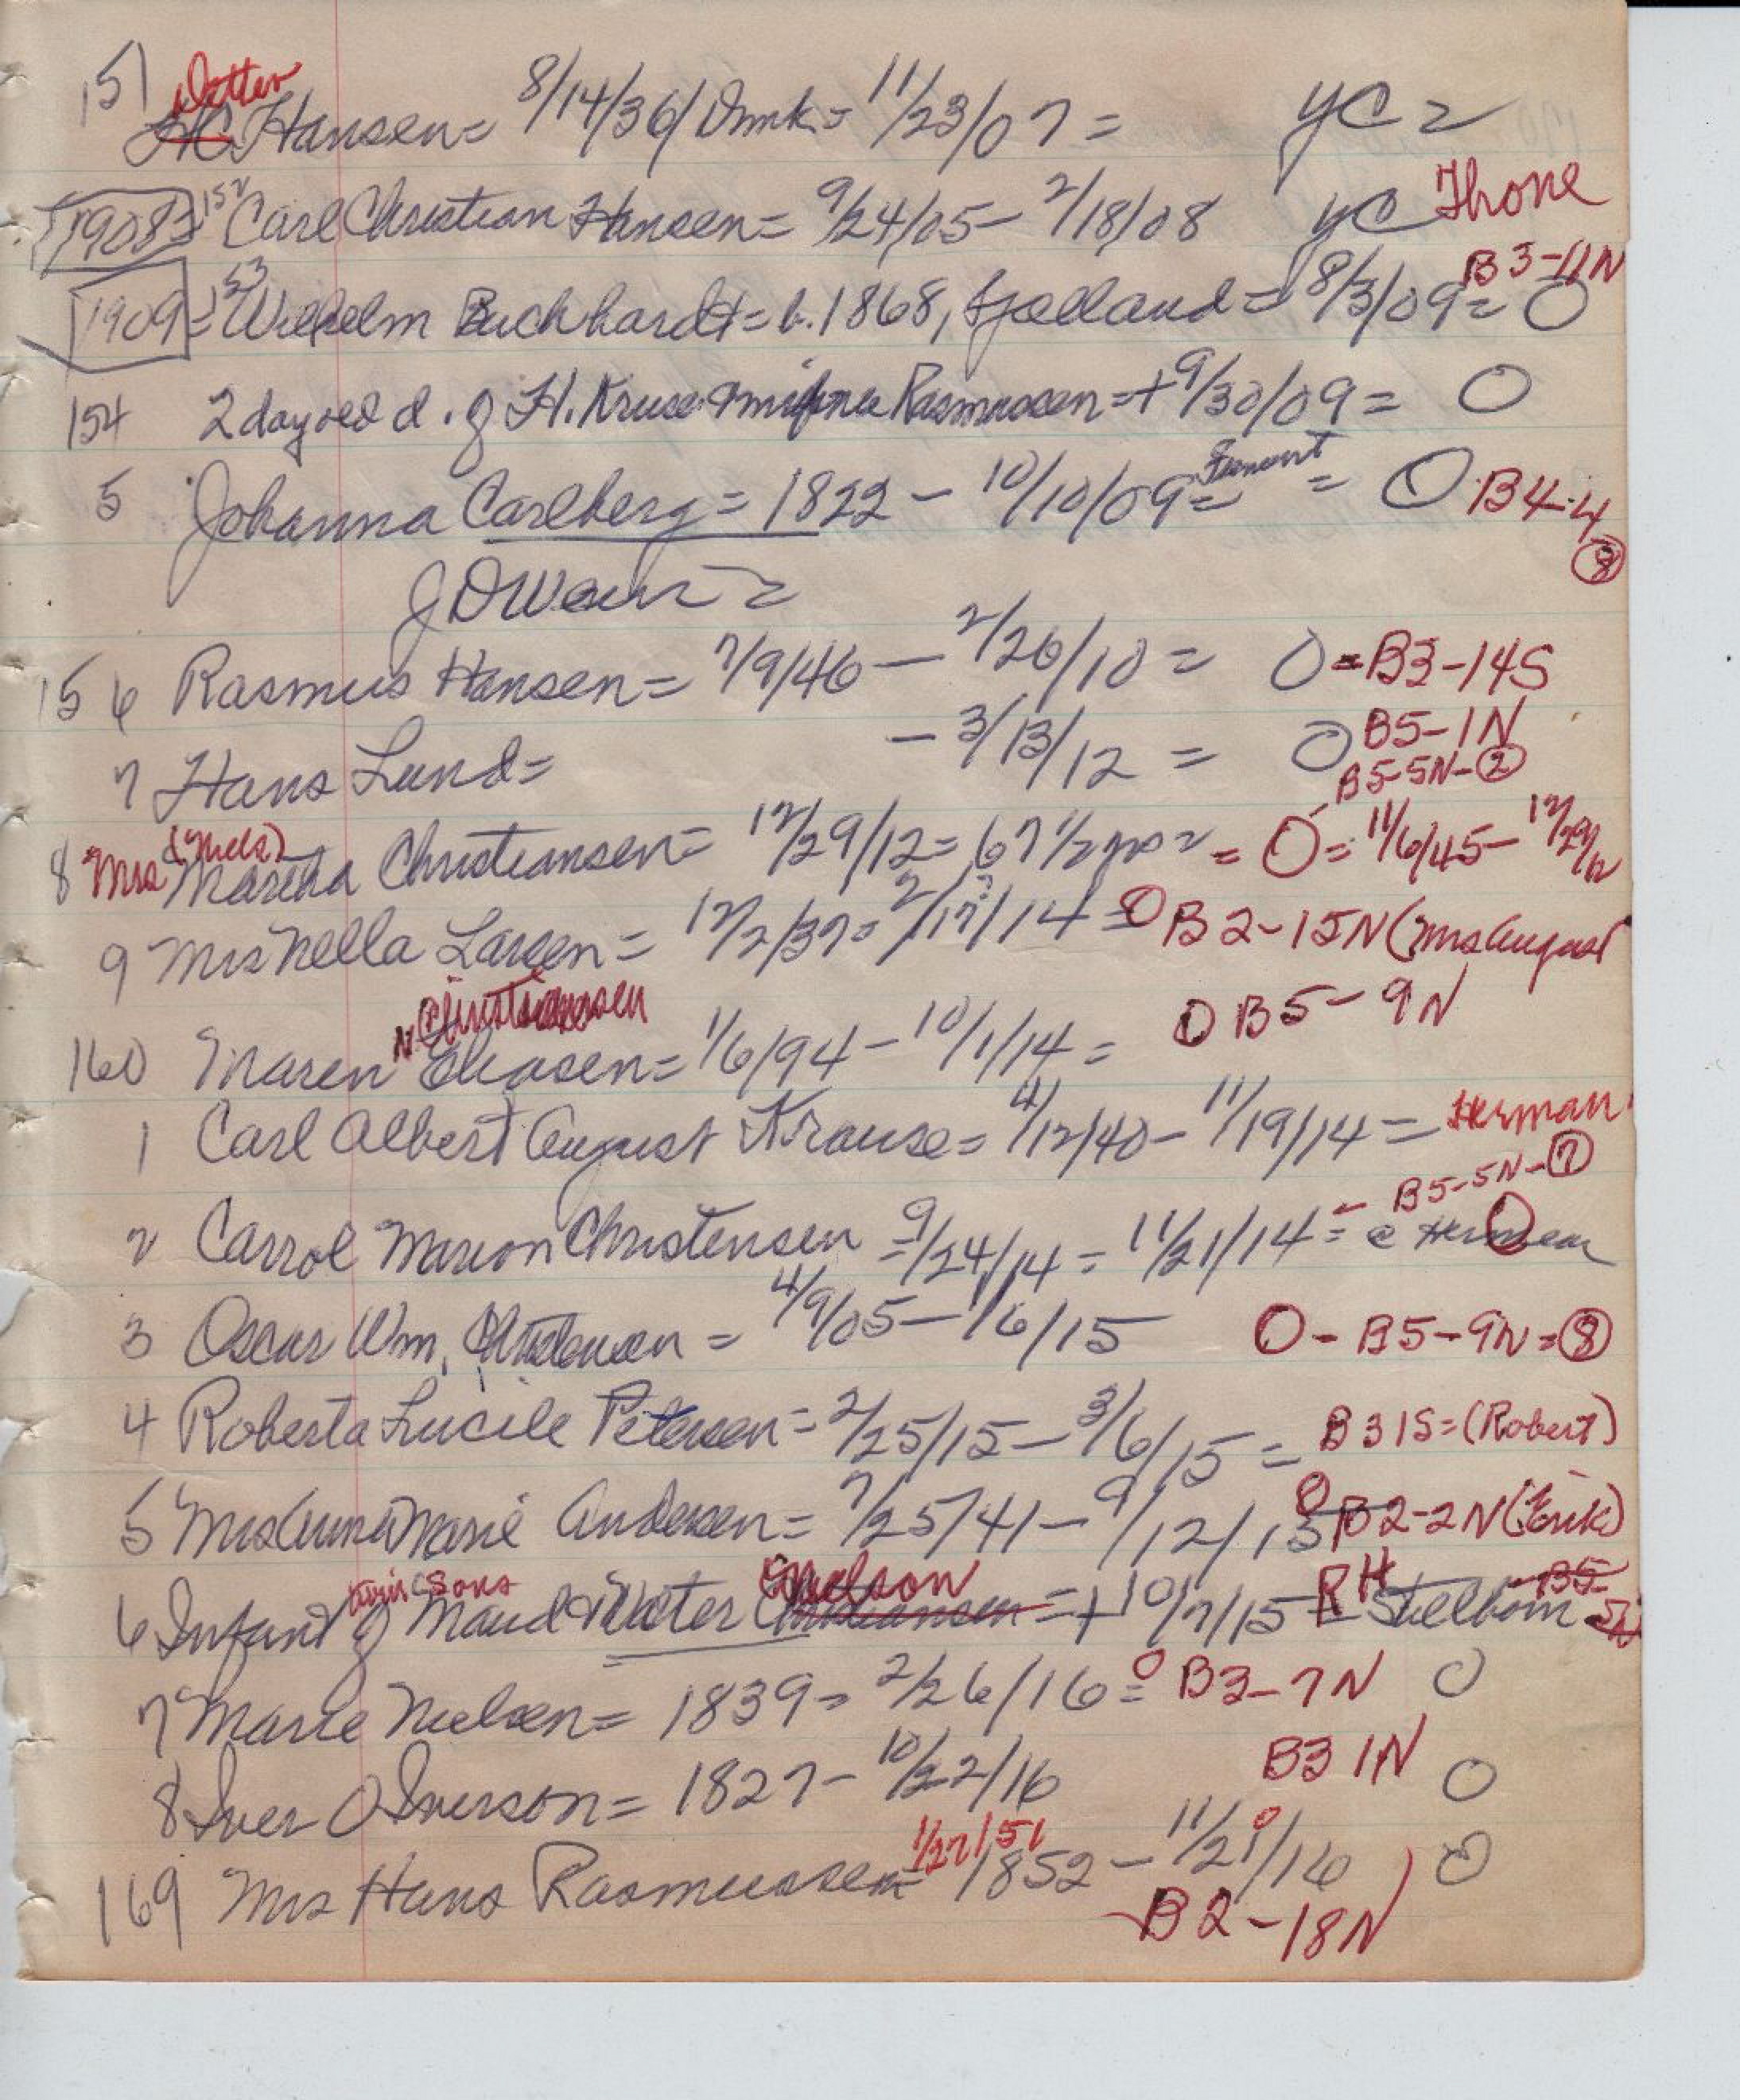 151 Ditlev
HC Hansen = 8/14/36/ Dmk = 11/23/07 = YC =
1908 = 152 Carl Christian Hansen = 9/24/05 - 2/18/08 YC Thone
1909 = 153 Wilhelm Buckhardt = b. 1868, Sjælland = 8/3/09 = O B3-11N
154 2 day old d. of H. Kruse Rasmussen = + 9/30/09 = O
5 Johanna Carlberg = 1822 - 10/10/09 = = O B4-4
8
Rasmus Hansen = 7/9/46 - 2/26/10 = O = B3-14S
156
7 Hans Lund = - 3/13/12 = O B5-1N
B5-5N-2
8 Mrs (Niels) Martha Christiansen = 12/29/12 = 67 1/2 yrs = = O = 11/6/45 - 12/29/12
9 Mrs Nella Larsen = 12/2/37 = 2/17/14 = O B2-15N (Mrs August
N. Christiansen
160 Maren Eliasen = 1/6/94 - 10/1/14 = O B5-9N
1 Carl Albert August Krause = 4/12/40 - 11/19/14 = Herman
2 Carrol Marion Christensen = 9/24/14 = 11/21/14 = - B5-5N-7
3 Oscar Wm. Christensen = 4/9/05 - 1/6/15 O - B5-9N = 8
4 Roberta Lucile Petersen = 2/25/15 - 3/6/15 = B3 1S = (Robert)
5 Mrs Anna Marie Andersen = 7/25/41 - 9/12/15 O B2-2N (Erik)
twin sons
6 Infant of Maud & Walter Christiansen = + 10/7/15 = RH B5-
7 Marie Nielsen = 1839 = 2/26/16 = O B3-7N O
8 Iver O Iverson = 1827 - 10/22/16 B3 1N O
1/27/51
169 Mrs Hans Rasmussen = 1852 - 11/21/16 O
B2-18N